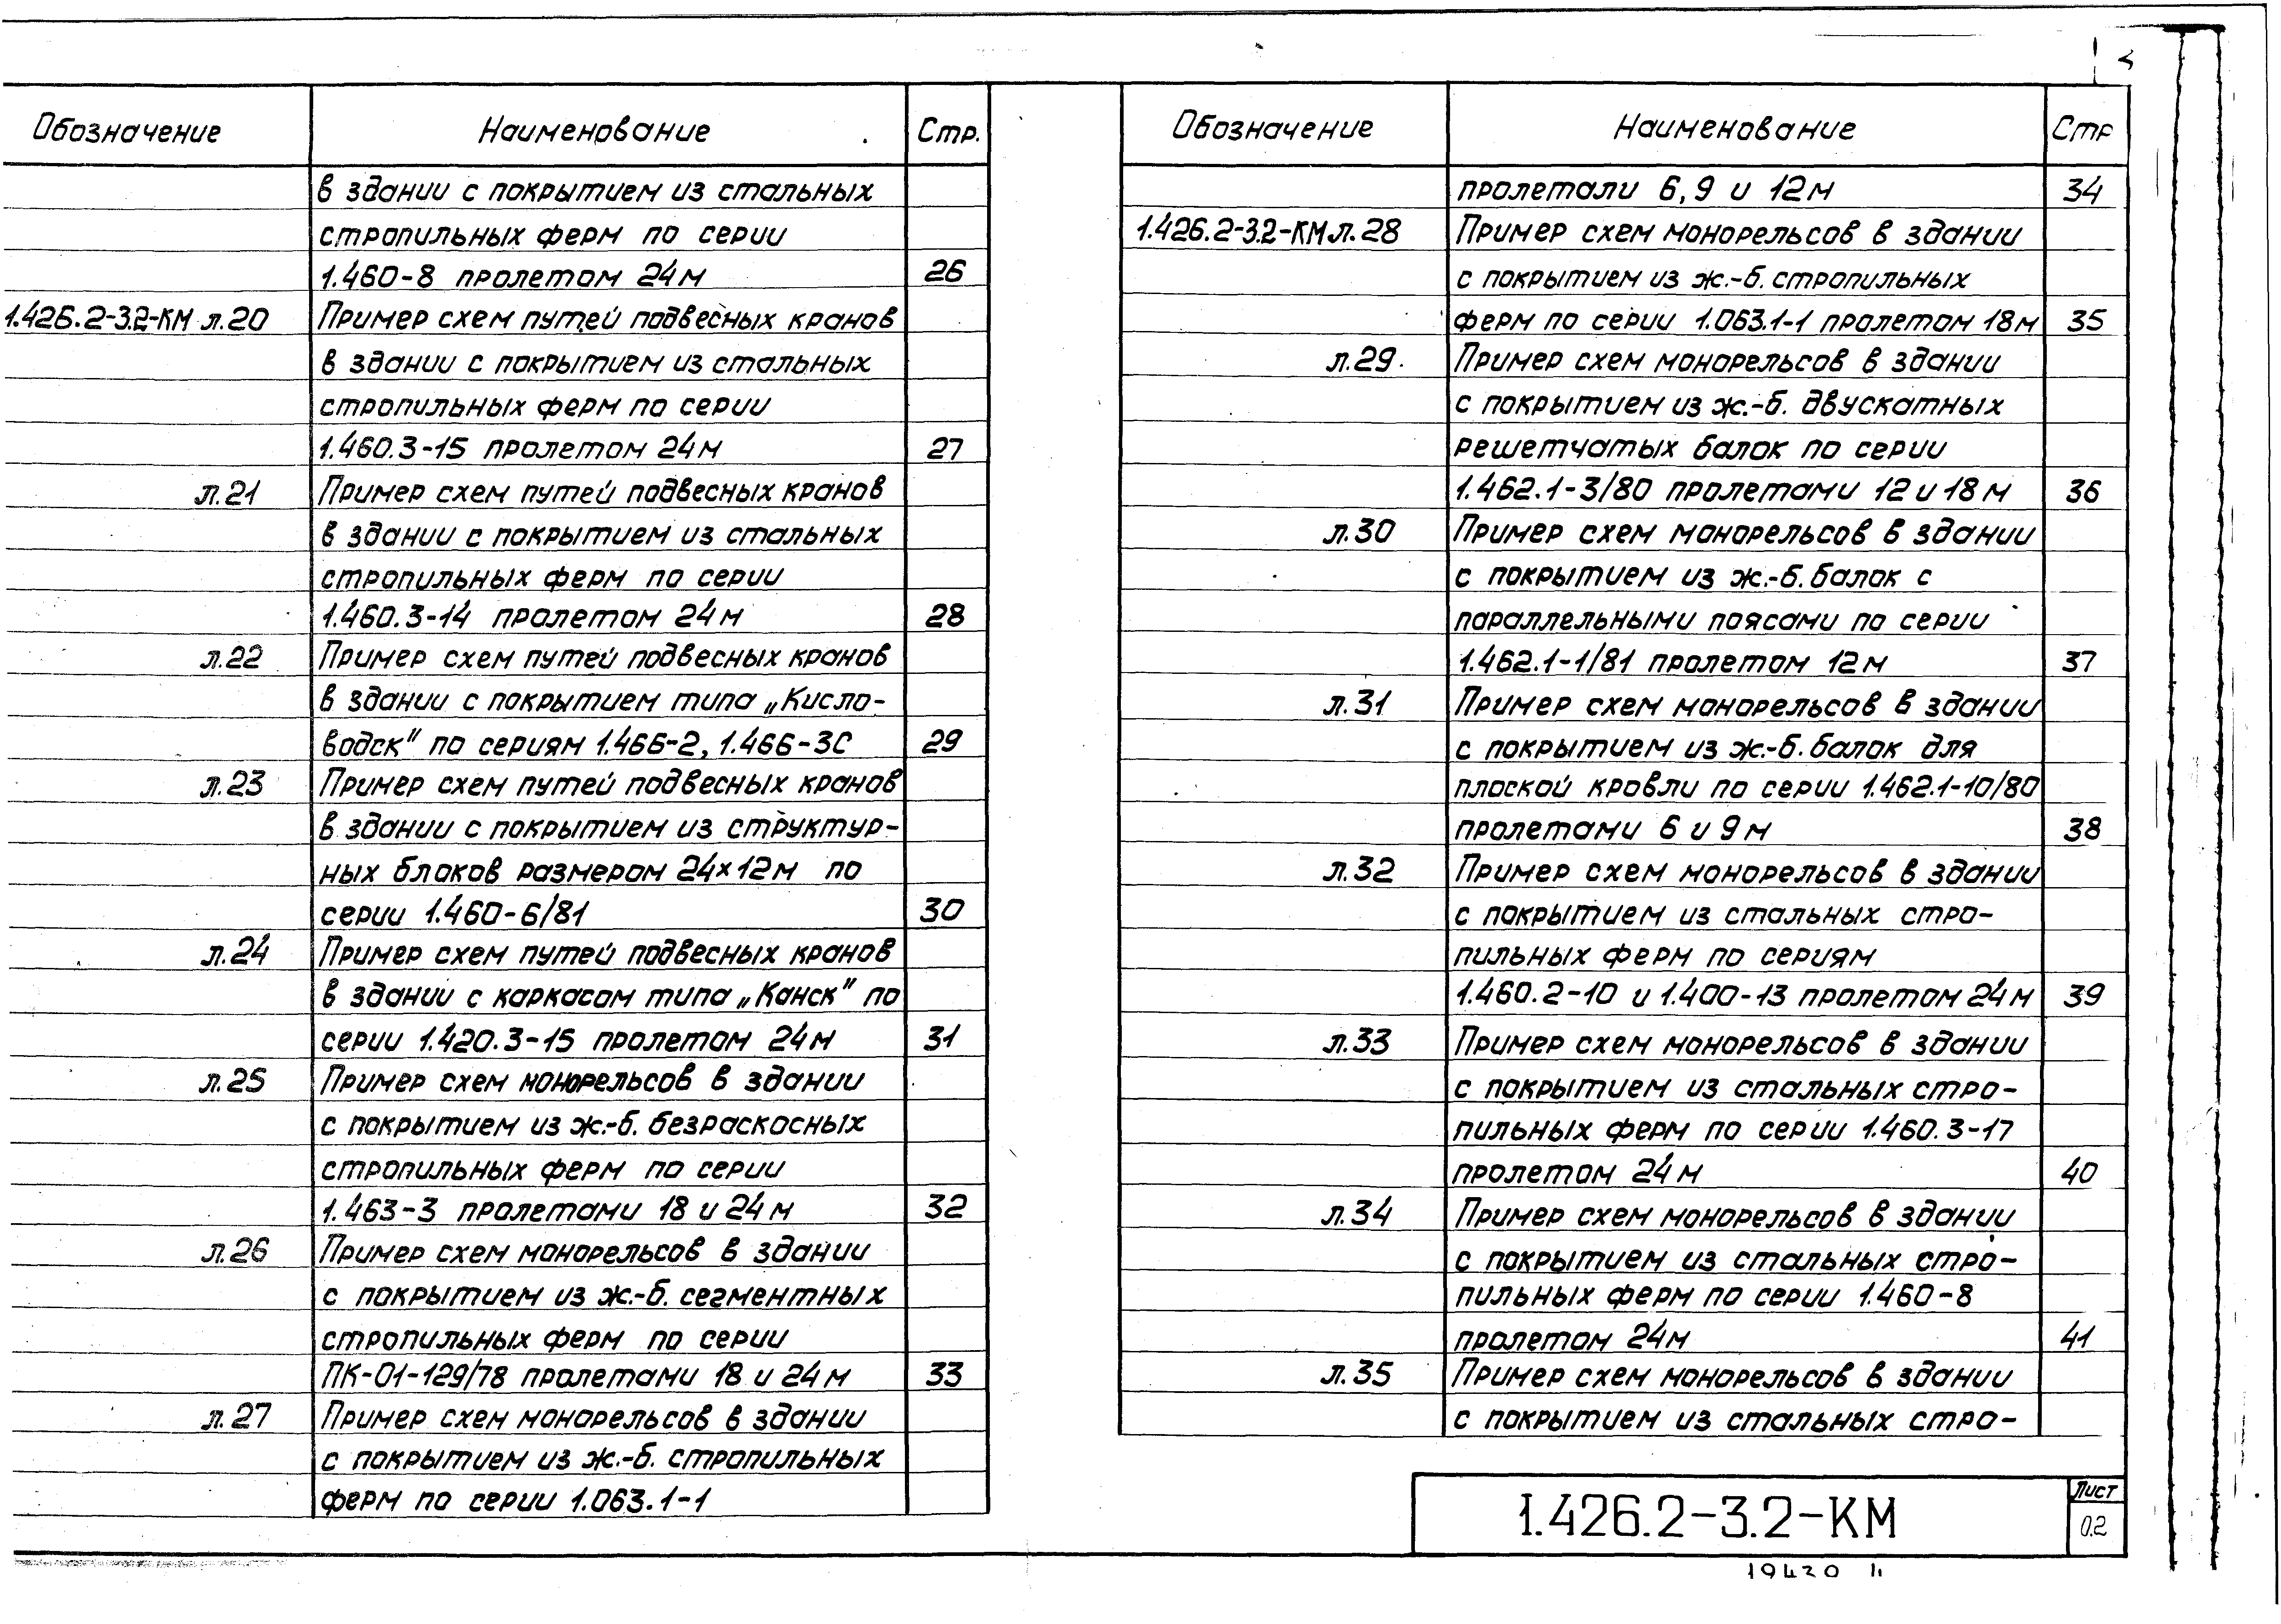 Обозначение Наименование Стр.
в здании с покрытием из стальных
стропильных ферм по серии
1.460-8 пролетом 24 м 26
1.426.2-3.2-КМ л.20 Пример схем путей подвесных кранов
в здании с покрытием из стальных
стропильных ферм по серии
1.460.3-15 пролетом 24 м 27
л.21 Пример схем путей подвесных кранов
в здании с покрытием из стальных
стропильных ферм по серии
1.460.3-14 пролетом 24 м 28
л.22 Пример схем путей подвесных кранов
в здании с покрытием типа „Кисло-
водск" по сериям 1.466-2, 1.466-3С 29
л.23 Пример схем путей подвесных кранов
в здании с покрытием из структур-
ных блоков размером 24×12м по
серии 1.460-6/81 30
л.24 Пример схем путей подвесных кранов
в здании с каркасом типа „Канск" по
серии 1.420.3-15 пролетом 24 м 31
л.25 Пример схем монорельсов в здании
с покрытием из ж.-б. безраскосных
стропильных ферм по серии
1.463-3 пролетами 18 и 24 м 32
л.26 Пример схем монорельсов в здании
с покрытием из ж.-б. сегментных
стропильных ферм по серии
ПК-01-129/78 пролетами 18 и 24 м 33
л.27 Пример схем монорельсов в здании
с покрытием из ж.-б. стропильных
ферм по серии 1.063.1-1
Обозначение Наименование Стр
пролетали 6, 9 и 12 м 34
1.426.2-3.2-КМ л.28 Пример схем монорельсов в здании
с покрытием из ж.-б. стропильных
ферм по серии 1.063.1-1 пролетом 18 м 35
л.29. Пример схем монорельсов в здании
с покрытием из ж.-б. двускатных
решетчатых балок по серии
1.462.1-3/80 пролетами 12 и 18 м 36
л.30 Пример схем монорельсов в здании
с покрытием из ж.-б. балок с
параллельными поясами по серии
1.462.1-1/81 пролетом 12 м 37
л.31 Пример схем монорельсов в здании
с покрытием из ж.-б. балок для
плоской кровли по серии 1.462.1-10/80
пролетами 6 и 9 м 38
л.32 Пример схем монорельсов в здании
с покрытием из стальных стро-
пильных ферм по сериям
1.460.2-10 и 1.400-13 пролетом 24 м 39
л.33 Пример схем монорельсов в здании
с покрытием из стальных стро-
пильных ферм по серии 1.460.3-17
пролетом 24 м 40
л.34 Пример схем монорельсов в здании
с покрытием из стальных стро-
пильных ферм по серии 1.460-8
пролетом 24м 41
л.35 Пример схем монорельсов в здании
с покрытием из стальных стро-
1.426.2-3.2-КМ
Лист
0.2
19420